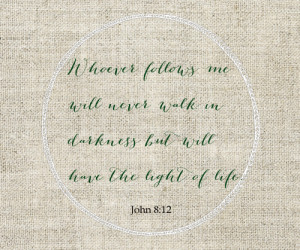 Whoever follows me
will never walk in
darkness but will
have the light of life
John 8:12